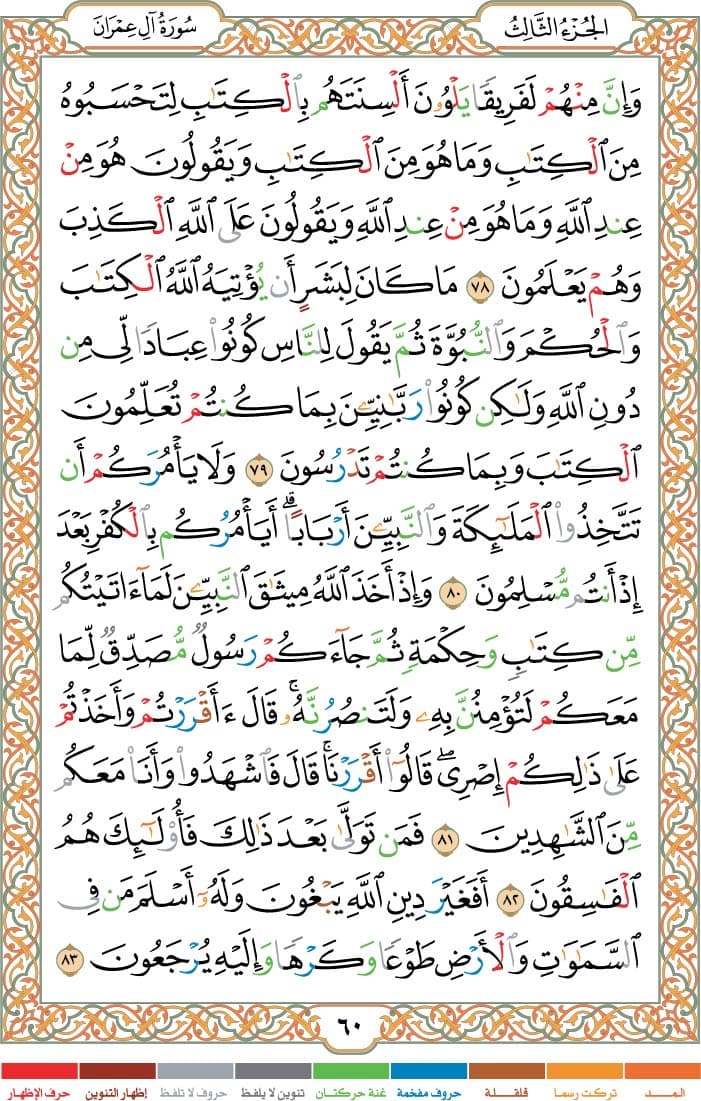 الجُزْءُ الثَّالِثُ
سُورَةُ آلِ عِمْرَانَ
وَإِنَّ مِنْهُمْ لَفَرِيقًا يَلْوُۥنَ أَلْسِنَتَهُم بِالْكِتَٰبِ لِتَحْسَبُوهُ
مِنَ الْكِتَٰبِ وَمَا هُوَ مِنَ الْكِتَٰبِ وَيَقُولُونَ هُوَ مِنْ
عِندِ اللَّهِ وَمَا هُوَ مِنْ عِندِ اللَّهِ وَيَقُولُونَ عَلَى اللَّهِ الْكَذِبَ
وَهُمْ يَعْلَمُونَ ٧٨ مَا كَانَ لِبَشَرٍ أَن يُؤْتِيَهُ اللَّهُ الْكِتَٰبَ
وَالْحُكْمَ وَالنُّبُوَّةَ ثُمَّ يَقُولَ لِلنَّاسِ كُونُوا۟ عِبَادًا لِّى مِن
دُونِ اللَّهِ وَلَٰكِن كُونُوا۟ رَبَّٰنِيِّۦنَ بِمَا كُنتُمْ تُعَلِّمُونَ
الْكِتَٰبَ وَبِمَا كُنتُمْ تَدْرُسُونَ ٧٩ وَلَا يَأْمُرَكُمْ أَن
تَتَّخِذُوا۟ الْمَلَٰٓئِكَةَ وَالنَّبِيِّۦنَ أَرْبَابًا ۗ أَيَأْمُرُكُم بِالْكُفْرِ بَعْدَ
إِذْ أَنتُم مُّسْلِمُونَ ٨٠ وَإِذْ أَخَذَ اللَّهُ مِيثَٰقَ النَّبِيِّۦنَ لَمَآ ءَاتَيْتُكُم
مِّن كِتَٰبٍ وَحِكْمَةٍ ثُمَّ جَآءَكُمْ رَسُولٌ مُّصَدِّقٌ لِّمَا
مَعَكُمْ لَتُؤْمِنُنَّ بِهِۦ وَلَتَنصُرُنَّهُۥ ۚ قَالَ ءَأَقْرَرْتُمْ وَأَخَذْتُمْ
عَلَىٰ ذَٰلِكُمْ إِصْرِى ۖ قَالُوٓا۟ أَقْرَرْنَا ۚ قَالَ فَاشْهَدُوا۟ وَأَنَا۠ مَعَكُم
مِّنَ الشَّٰهِدِينَ ٨١ فَمَن تَوَلَّىٰ بَعْدَ ذَٰلِكَ فَأُو۟لَٰٓئِكَ هُمُ
الْفَٰسِقُونَ ٨٢ أَفَغَيْرَ دِينِ اللَّهِ يَبْغُونَ وَلَهُۥٓ أَسْلَمَ مَن فِى
السَّمَٰوَٰتِ وَالْأَرْضِ طَوْعًا وَكَرْهًا وَإِلَيْهِ يُرْجَعُونَ ٨٣
٦٠
المـــد تركت رسما قلقلة حروف مفخمة غنة حركتان تنوين لا يلفظ حروف لا تلفظ إظهار التنوين حرف الإظهار